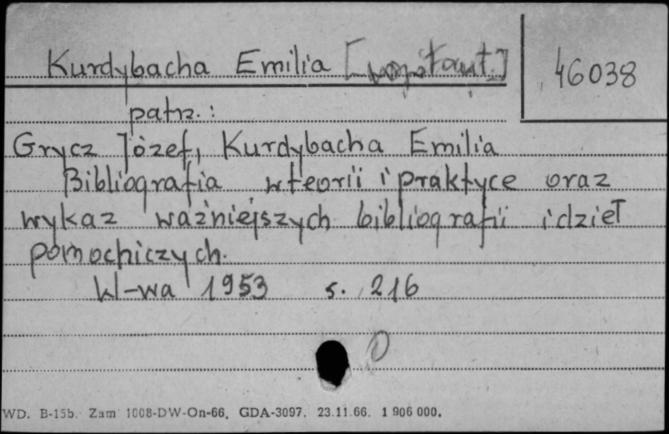 Kurdybacha Emilia [współaut.]
46038
patrz.:
Grycz Józef, Kurdybacha Emilia
Bibliografia w teorii i praktyce oraz
wykaz ważniejszych bibliografii i dzieł
pomochiczych.
W-wa 1953 s. 216
0
WD. B-15b. Zam 1008-DW-On-66, GDA-3097. 23.11.66. 1 906 000.